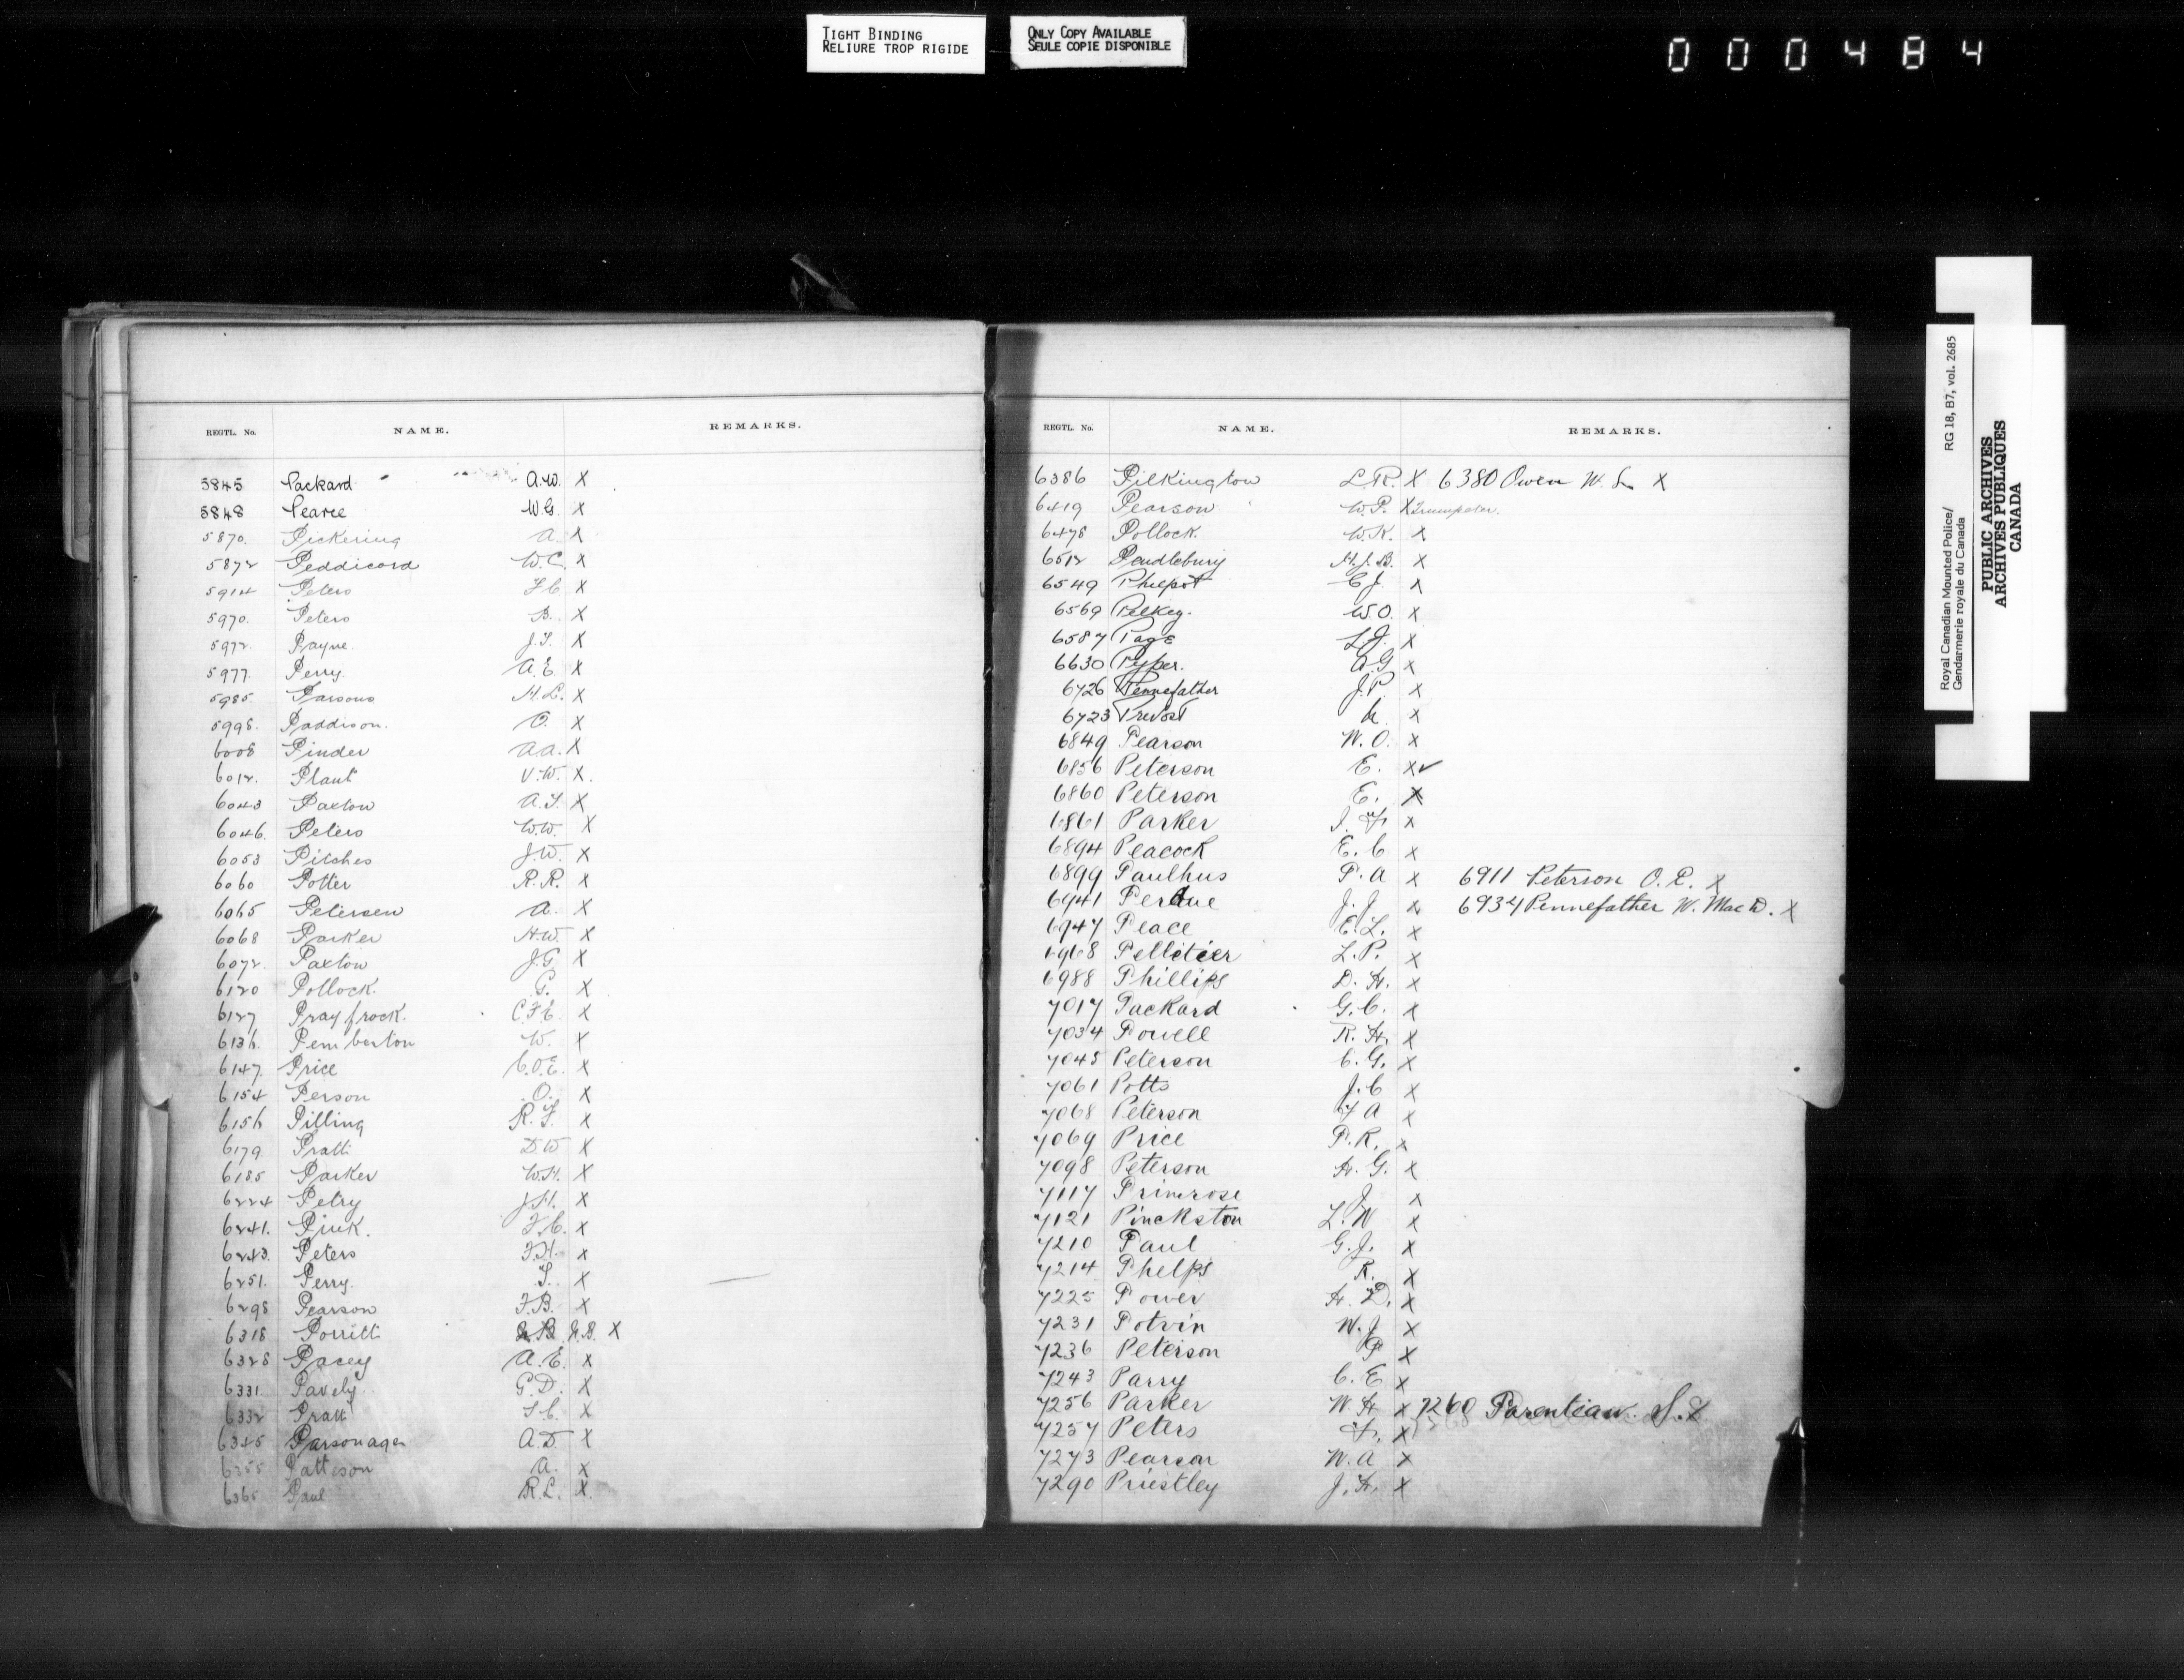 TIGHT BINDING
RELIURE TROP RIGIDE
ONLY COPY AVAILABLE
SEULE COPIE DISPONIBLE
000484
REGTL. No. NAME. REMARKS.
5845 Packard A.W. X
5848 Pearce W.G. X
5870. Pickering A. X
5872 Peddicord W.C. X
5914 Peters F.C X
5970. Peters B. X
5972. Payne. J.S. X
5977. Perry. A.E. X
5985. Parsons H.L. X
5998. Paddison. O. X
6008 Pinder A.A. X
6012. Plant V.W. X.
6043 Paxton A.S. X
6046. Peters W.W. X
6053 Pitshes J.W. X
6060 Potter R.R. X
6065 Petersen A. X
6068 Parker H.W. X
6072. Paxton J.G. X
6120 Pollock. G. X
6127 Prayfrock. C.F.E. X
6136. Pemberton W. X
6147. Price C.O.E. X
6154 Person O. X
6156 Pilling R.F. X
6179. Pratt D.W X
6185 Parker W.H. X
6224 Petry J.H. X
6241. Pink. F.C. X
6243. Peters F.H. X
6251. Perry. S. X
6298 Pearson F.B. X
6318 Porritt J.B. X
6328 Pacey A.E. X
6331. Pavely. G.D. X
6332 Pratt S.C. X
6345 Parsonage A.D. X
6355 Patteson A. X
6365 Paul R.L. X.
REGTL. No. NAME. REMARKS.
6386 Pilkington L.R. X 6380 Owen W. L. X
6419 Pearson W.P. X Trumpeter.
6478 Pollock. W.K. X
6512 Pendlebury H.J.B. X
6549 Philpot E J. X
6569 Pelkey. W.O. X
6587 Page L.J. X
6630 Pyper. A.G X
6726 Pennefather J.P. X
6723 Prevost X
6849 Pearson W.O. X
6856 Peterson E. X✓
6860 Peterson E. X
6861 Parker J. F. X
6894 Peacock E. C X
6899 Paulhus P. A X 6911 Peterson O. P. X
6941 Perdue J. J X 6934 Pennefather W. MacD. X
6947 Peace E. L. X
6968 Pelletier L. P. X
6988 Phillips D. H. X
7017 Packard G. C. X
7034 Powell R. H. X
7045 Peterson C. G. X
7061 Potts J. C X
7068 Peterson F A X
7069 Price P. R. X
7098 Peterson H. G. X
7117 Primrose J X
7121 Pinckston L. W X
7210 Paul G. J. X
7214 Phelps R. X
7225 Power H. D. X
7231 Potvin W. J X
7236 Peterson P X
7243 Parry C. E X
7256 Parker W. H X 7260 Parentiau. S. X
7257 Peters F. X
7273 Pearson W. A X
7290 Priestley J. H. X
Royal Canadian Mounted Police/ RG 18, B7, vol. 2685
Gendarmerie royale du Canada
PUBLIC ARCHIVES
ARCHIVES PUBLIQUES
CANADA